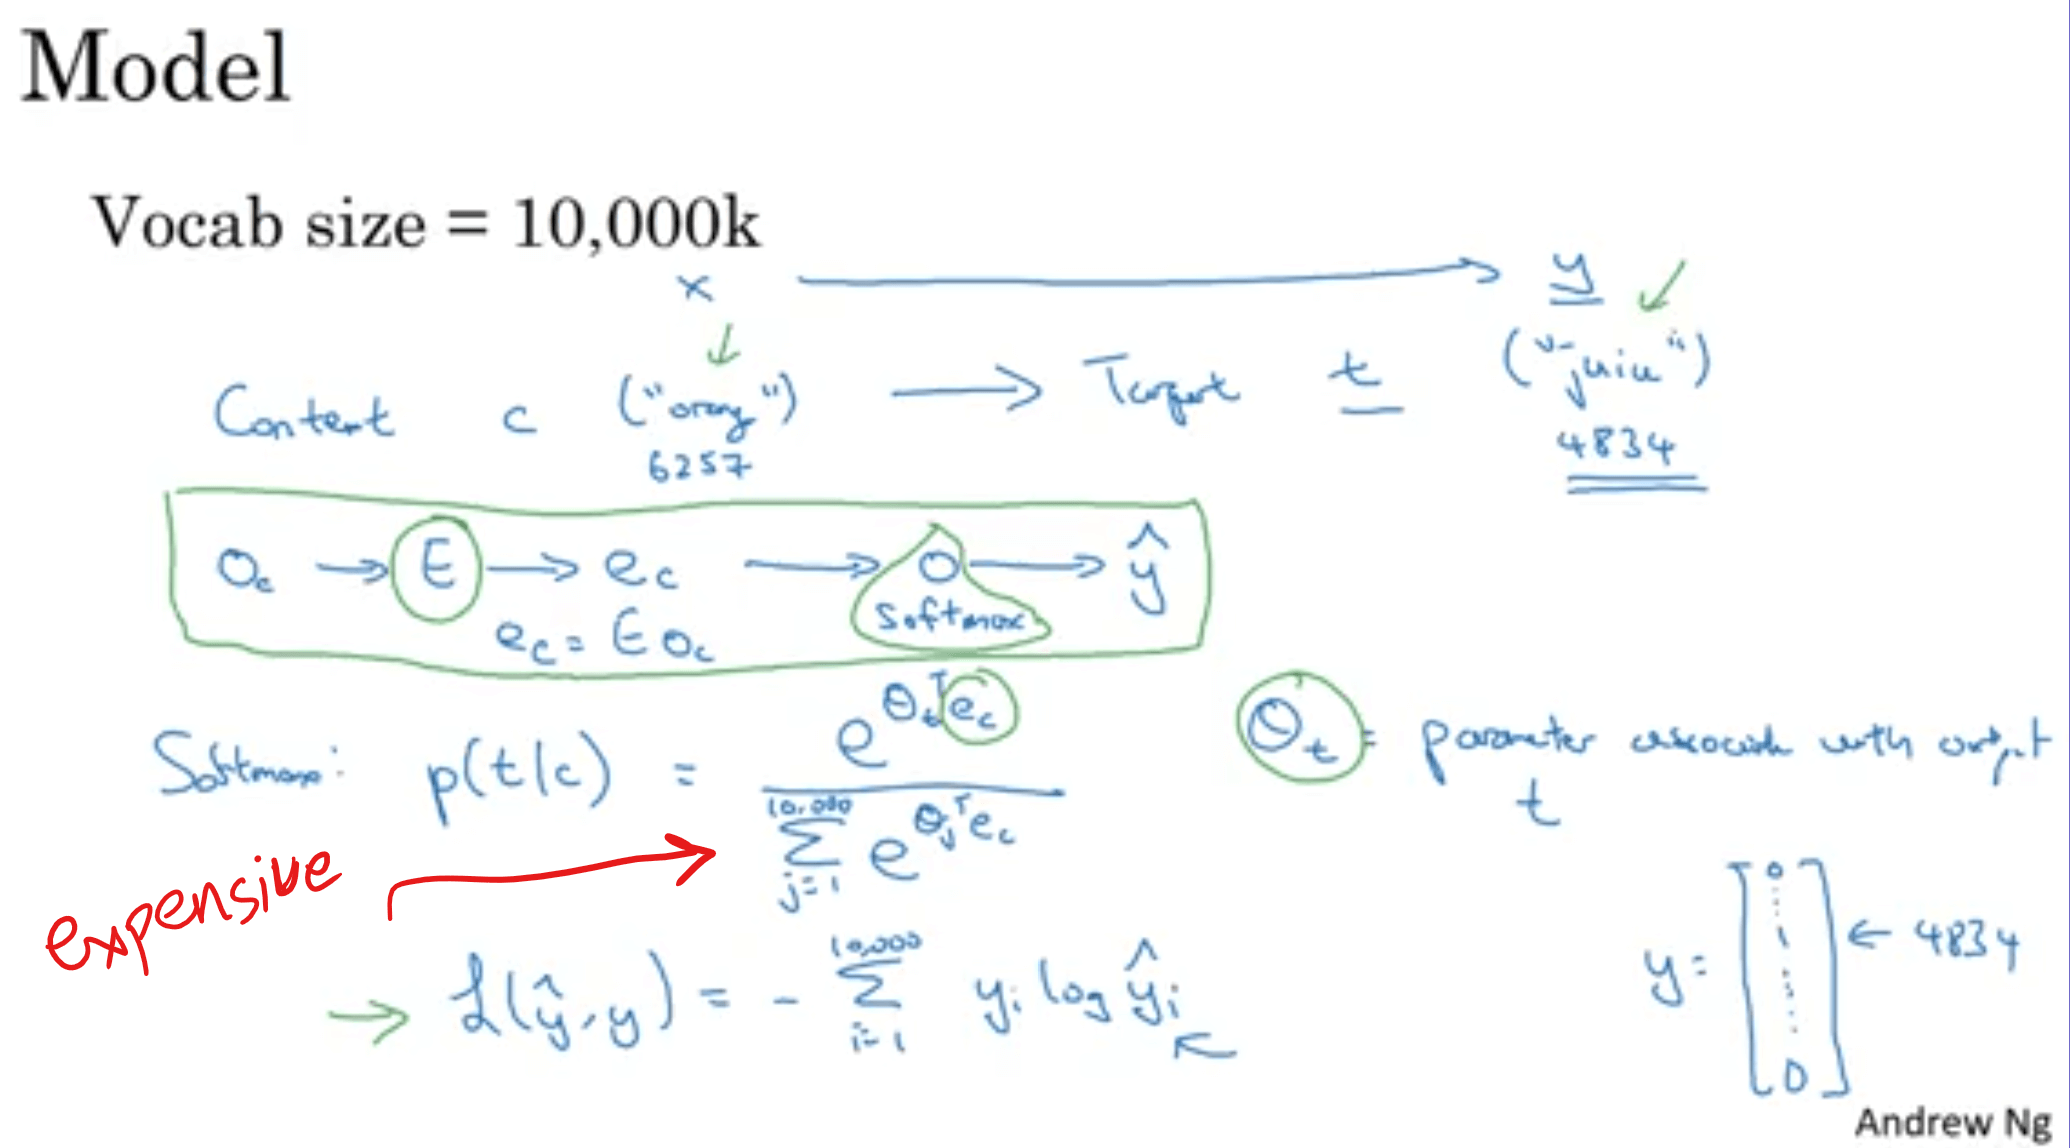 Model
Vocab size = 10,000k
x → y
Context c ("orange") → Target t ("juice")
6257 4834
O_c → E → e_c → O → ŷ
softmax
e_c = E O_c
Softmax: p(t|c) = e^{θ_t^T e_c} / Σ_{j=1}^{10,000} e^{θ_j^T e_c}
θ_t = parameter associated with output t
expensive →
→ L(ŷ, y) = - Σ_{i=1}^{10,000} y_i log ŷ_i
y = [0 ⋮ 1 ⋮ 0] ← 4834
Andrew Ng